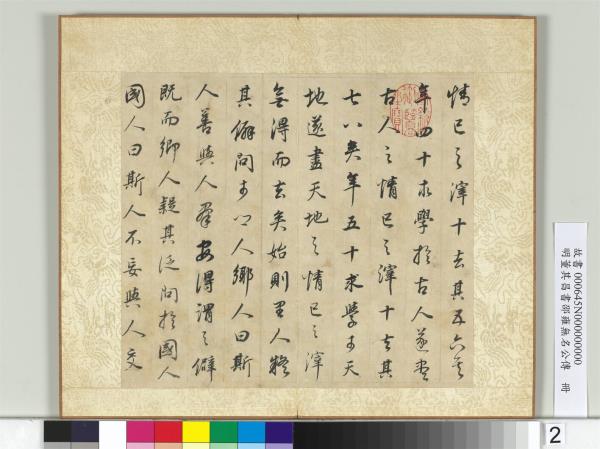 情已之滓十去其五六矣
年四十求學於古人遂盡
古人之情已之滓十去其
七八矣年五十求學于天
地遂盡天地之情已之滓
無得而去矣始則里人疑
其僻問于鄉人鄉人曰斯
人善與人羣安得謂之僻
既而鄉人疑其泛問於國人
國人曰斯人不妄與人交
故書 000645N000000000
明董其昌書邵雍無名公傳 冊
2